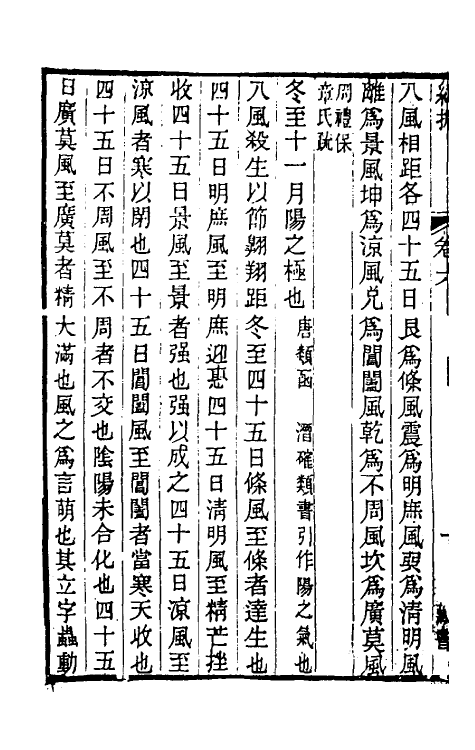 卷六
八風相距各四十五日艮爲條風震爲明庶風巽爲清明風
離爲景風坤爲涼風兌爲閶闔風乾爲不周風坎爲廣莫風
周禮保
章氏疏
冬至十一月陽之極也唐類函 潛確類書引作陽之氣也
八風殺生以節翺翔距冬至四十五日條風至條者達生也
四十五日明庶風至明庶迎惠四十五日清明風至精芒挫
收四十五日景風至景者强也强以成之四十五日涼風至
涼風者寒以閉也四十五日閶闔風至閶闔者當寒天收也
四十五日不周風至不周者不交也陰陽未合化也四十五
日廣莫風至廣莫者精大滿也風之爲言萌也其立字蟲動